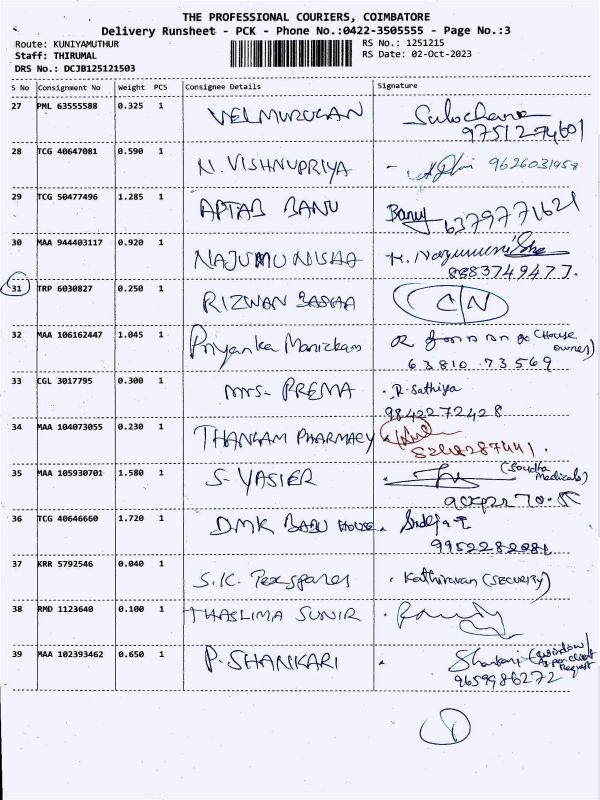 THE PROFESSIONAL COURIERS, COIMBATORE
Delivery Runsheet - PCK - Phone No.:0422-3505555 - Page No.:3
Route: KUNIYAMUTHUR RS No.: 1251215
Staff: THIRUMAL RS Date: 02-Oct-2023
DRS No.: DCJB125121503
S No Consignment No Weight PCS Consignee Details Signature
27 PML 63555588 0.325 1 VELMURUGAN Sulochana
9751274601
28 TCG 40647081 0.590 1 N. VISHNUPRIYA 9626031958
29 TCG 50477496 1.285 1 APTAB BANU Banu
6379771621
30 MAA 944403117 0.920 1 NAJUMU NISHA
8883749477.
31 TRP 6030827 0.250 1 RIZWAN BASHA C/N
32 MAA 106162447 1.045 1 Priyanka Manickam (House owner)
63810 73569
33 CGL 3017795 0.300 1 Mrs. PREMA R. Sathiya
9842272428
34 MAA 104073055 0.230 1 THANGAM PHARMACY
35 MAA 105930701 1.580 1 S. YASIER Medicals)
36 TCG 40646660 1.720 1 DMK BABU HOUSE
9952282081
37 KRR 5792546 0.040 1 S.K. Texspares Kathiravan (SECURITY)
38 RMD 1123640 0.100 1 THASLIMA SUNIR
39 MAA 102393462 0.650 1 P. SHANKARI Shankari (window
As per client
Request
9659986272